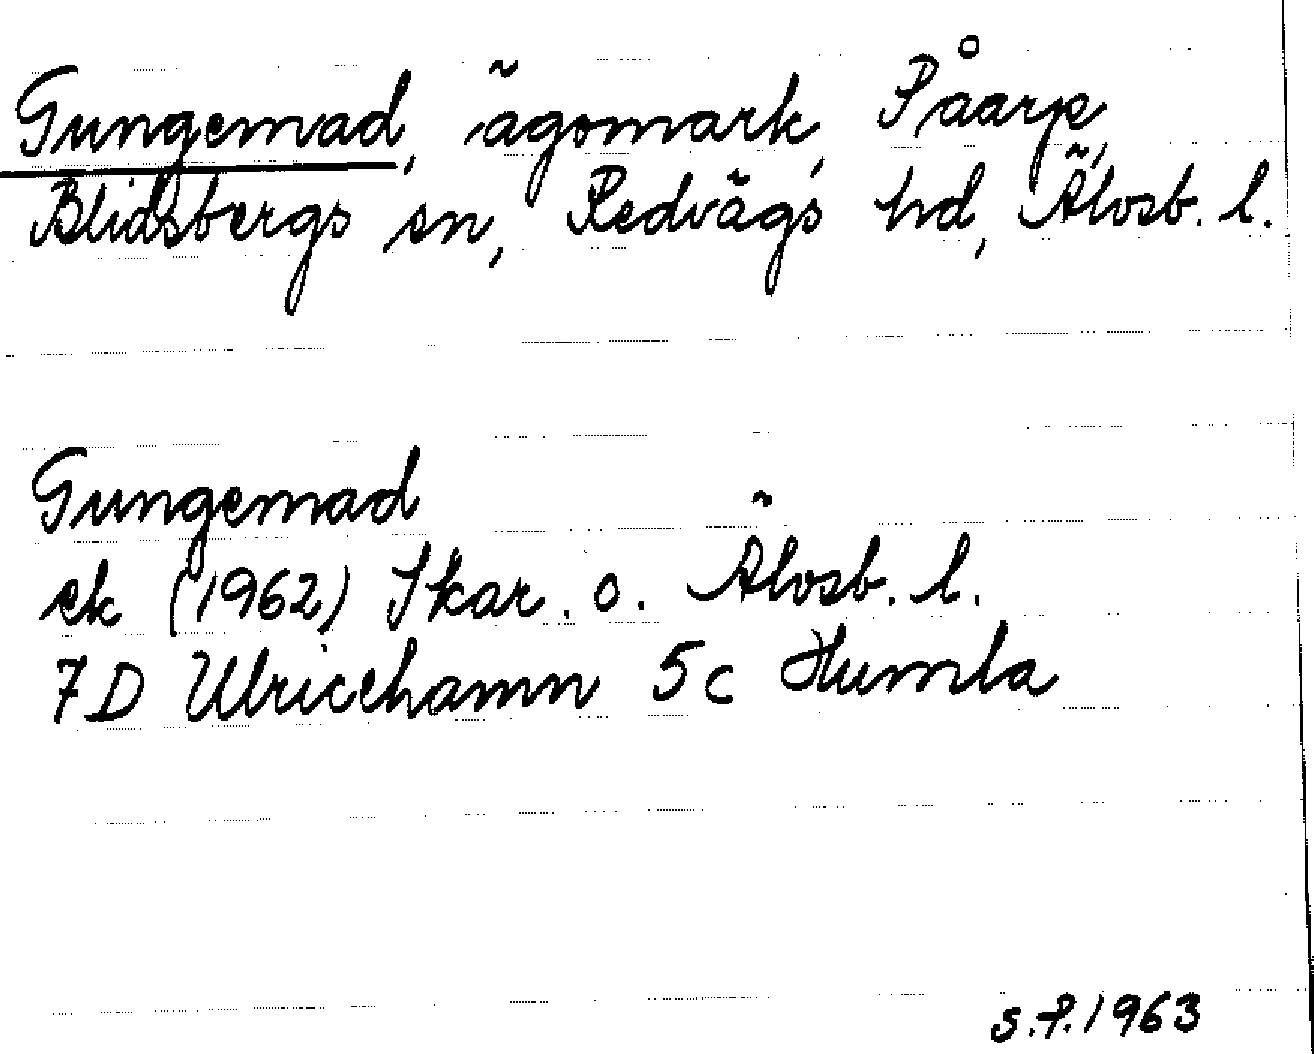 Gungemad, ägomark, Påarp,
Blidsbergs sn, Redvägs hd, Älvsb. l.
Gungemad
ek (1962) Skar. o. Älvsb. l.
7D Ulricehamn 5c Humla
S.P. 1963